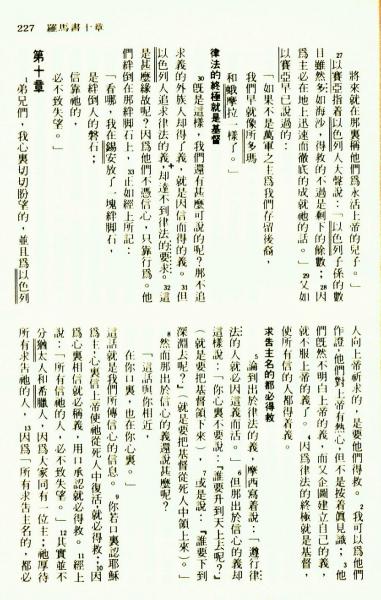 227　羅馬書十章
將來就在那裏稱他們爲永活上帝的兒子。」
27以賽亞指着以色列人大聲說：「以色列子孫的數
目雖然多如海沙，得救的不過是剩下的餘數；28因
爲主必在地上迅速而徹底的成就祂的話。」29又如
以賽亞早已說過的：
「如果不是萬軍之主爲我們存留後裔，
我們早就像所多瑪
和蛾摩拉一樣了。」
律法的終極就是基督
30旣是這樣，我們還有甚麼可說的呢？那不追
求義的外族人却得了義，就是因信而得的義。31但
以色列人追求律法的義，却達不到律法的要求。32這
是甚麼緣故呢？因爲他們不憑信心，只靠行爲。他
們絆倒在那絆脚石上，33正如經上所記：
「看哪，我在錫安放了一塊絆脚石，
是絆倒人的磐石；
信靠祂的，
必不致失望。」
第十章
1弟兄們，我心裏切切盼望的，並且爲以色列
人向上帝祈求的，是要他們得救。2我可以爲他們
作證，他們對上帝有熱心，但不是按着眞見識；3他
們旣然不明白上帝的義，而又企圖建立自己的義，
就不服上帝的義了。4因爲律法的終極就是基督，
使所有信的人都得着義。
求告主名的都必得救
5論到出於律法的義，摩西寫着說：「遵行律
法的人就必因這義而活。」6但那出於信心的義却
這樣說：「你心裏不要說：『誰要升到天上去呢？』
（就是要把基督領下來），7或是說：『誰要下到
深淵去呢？』（就是要把基督從死人中領上來）。」
8然而那出於信心的義還說甚麼呢？
「這話與你相近，
在你口裏，也在你心裏。」
這話就是我們所傳信心的信息。9你若口裏認耶穌
爲主，心裏信上帝使祂從死人中復活，就必得救；10因
爲心裏相信就必稱義，用口承認就必得救。11經上
說：「所有信祂的人，必不致失望。」12其實並不
分猶太人和希臘人，因爲人家同有一位主；祂厚待
所有求告祂的人，13因爲「所有求告主名的，都必